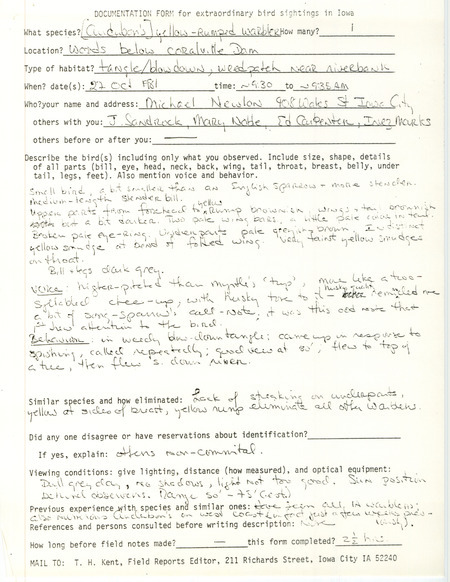 DOCUMENTATION FORM for extraordinary bird sightings in Iowa
What species? (Audubon's) Yellow-Rumped Warbler How many? 1
Location? Woods below Coralville Dam
Type of habitat? tangle/blowdown, weedpatch near riverbank
When? date(s): 27 Oct 1981 time: ~9:30 to ~9:35 AM
Who? your name and address: Michael Newlon 908 Wales St Iowa City
others with you: J. Sandrock, Mary Noble, Ed Carpenter, Inez Marks
others before or after you:
Describe the bird(s) including only what you observed. Include size, shape, details
of all parts (bill, eye, head, neck, back, wing, tail, throat, breast, belly, under
tail, legs, feet). Also mention voice and behavior.
Small bird, a bit smaller than an English Sparrow - more slender.
medium-length slender bill.
yellow
Upper parts from forehead to rump brownish, wings + tail brownish
but a bit darker. Two pale wing bars, a little pale in tail.
Broken pale eye-ring. Underparts pale greying brown, indistinct
yellow smudge at bend of folded wing. Very faint yellow smudges
on throat.
Bill + legs dark grey.
Voice: higher-pitched than myrtle's "tup", more like a two-
syllabled chee-up, with husky tone to it - husky quality reminded me
a bit of song-sparrow's call-note; it was this odd note that
1st drew attention to the bird.
Behavior: in weedy blow-down tangle; came up in response to
spishing, called repeatedly; good view at 50', flew to top of
a tree, then flew down river.
Similar species and how eliminated: Lack of streaking on underparts,
yellow at sides of breast, yellow rump eliminate all other warblers.
Did any one disagree or have reservations about identification?
If yes, explain: others non-committal.
Viewing conditions: give lighting, distance (how measured), and optical equipment:
Dull grey day, no shadows, light not too good. Sun position
behind observers. Range 50' - 75'
Previous experience with species and similar ones: have seen all warblers;
also numerous Audubon's on west coast
References and persons consulted before writing description: None
How long before field notes made? — this form completed? 2½ hrs
MAIL TO: T. H. Kent, Field Reports Editor, 211 Richards Street, Iowa City IA 52240